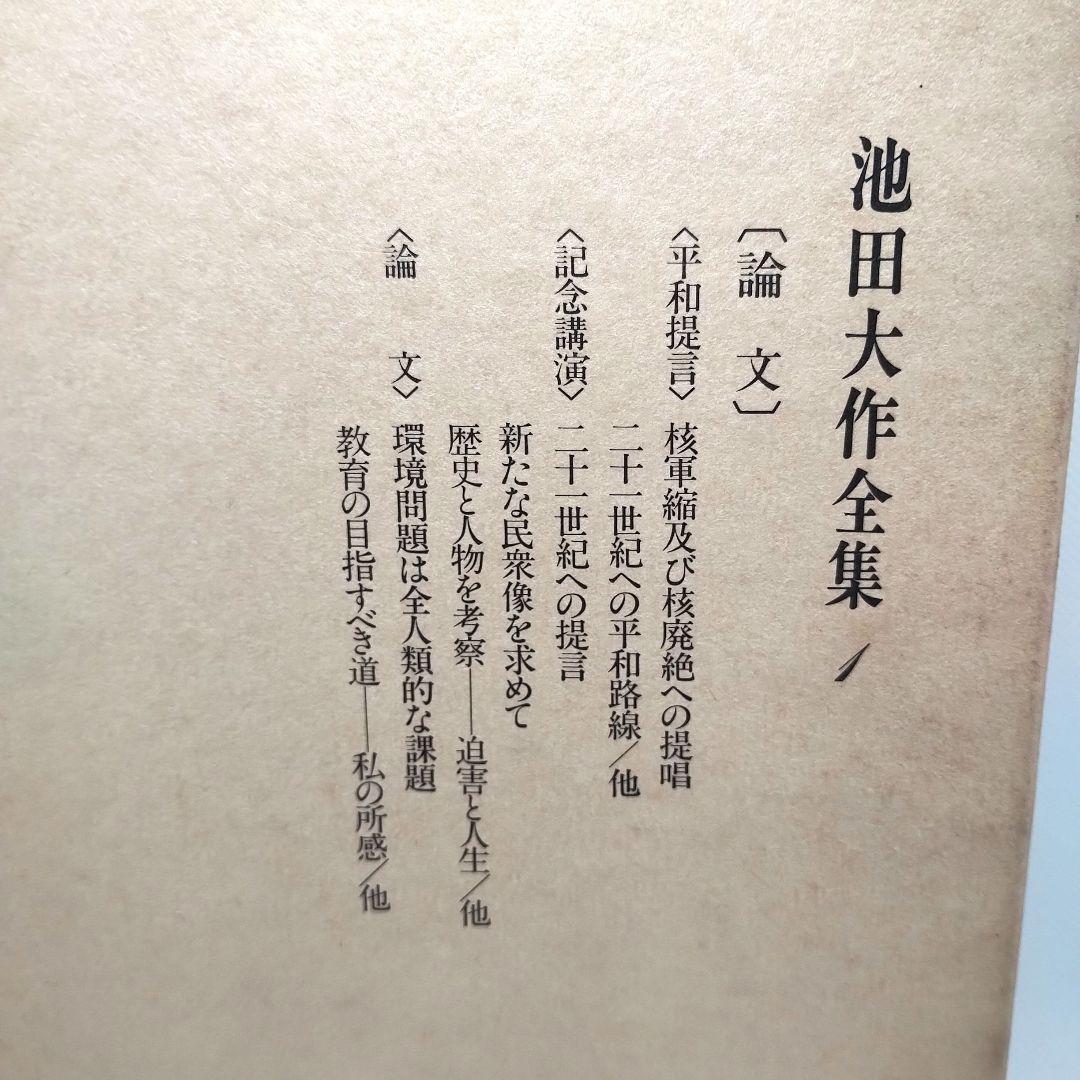 池田大作全集 1
〔論 文〕
〈平和提言〉 核軍縮及び核廃絶への提唱
二十一世紀への平和路線/他
〈記念講演〉 二十一世紀への提言
新たな民衆像を求めて
歴史と人物を考察――迫害と人生/他
〈論 文〉 環境問題は全人類的な課題
教育の目指すべき道――私の所感/他